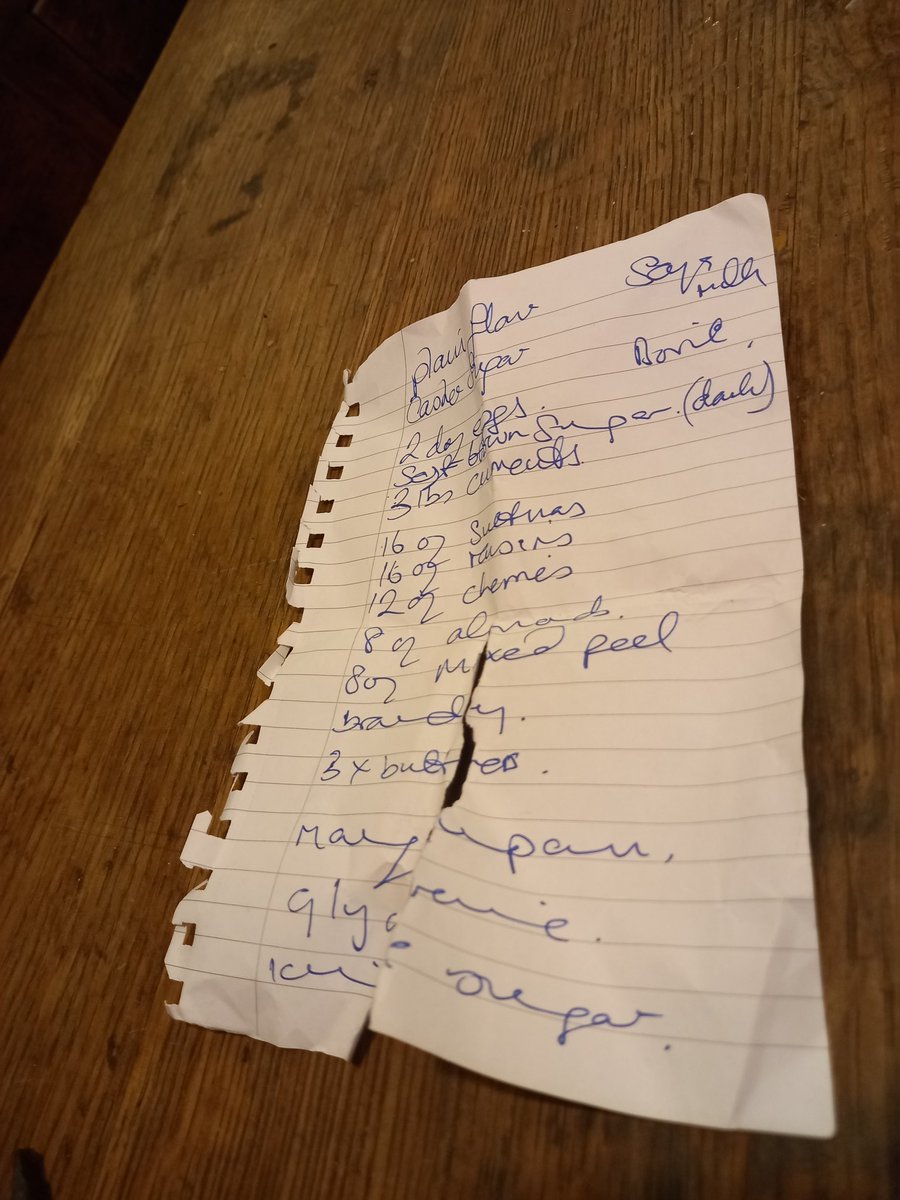 Soya milk
plain flour
Caster Sugar
Bovril.
2 doz eggs.
Soft brown Sugar. (dark)
3 lbs currants.
16 oz Sultanas
16 oz raisins
12 oz cherries
8 oz almonds.
8 oz Mixed peel
brandy.
3 x butters.
Marzipan.
Glycerine.
Icing sugar.